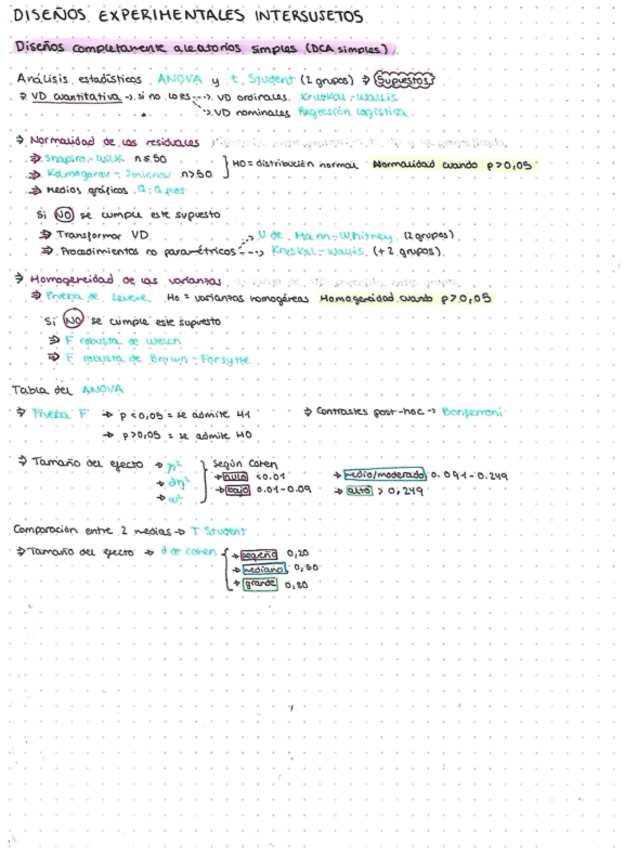 DISEÑOS EXPERIMENTALES INTERSUJETOS
Diseños completamente aleatorios simples (DCA simples)
Análisis estadísticos ANOVA y t Student (2 grupos) → Supuestos
→ VD cuantitativa → si no lo es → VD ordinales Kruskal-Wallis
→ VD nominales Regresión logística
→ Normalidad de los residuales
→ Shapiro-Wilk n≤50
→ Kolmogorov-Smirnov n>50 } H0 = distribución normal Normalidad cuando p>0,05
→ Medios gráficos Q-Q plot
Si NO se cumple este supuesto
→ Transformar VD
→ Procedimientos no paramétricos → U de Mann-Whitney (2 grupos)
→ Kruskal-Wallis (+2 grupos)
→ Homogeneidad de las varianzas
→ Prueba de Levene H0 = varianzas homogéneas Homogeneidad cuando p>0,05
Si NO se cumple este supuesto
→ F robusta de Welch
→ F robusta de Brown-Forsythe
Tabla del ANOVA
→ Prueba F → p<0,05 = se admite H1 → Contrastes post-hoc → Bonferroni
→ p>0,05 = se admite H0
→ Tamaño del efecto → η² } Según Cohen
→ ∂η² → nulo <0.01 → medio/moderado 0.091-0.249
→ ω² → bajo 0.01-0.09 → alto > 0,249
Comparación entre 2 medias → T Student
→ Tamaño del efecto → d de Cohen { → pequeño 0,20
→ mediano 0,50
→ grande 0,80